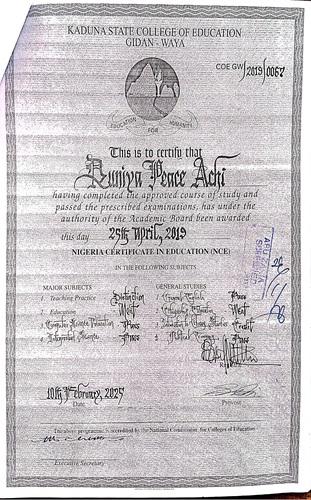 KADUNA STATE COLLEGE OF EDUCATION
GIDAN - WAYA
COE GW/2019/0067
EDUCATION FOR HUMANITY
This is to certify that
Duniya Peace Achi
having completed the approved course of study and
passed the prescribed examinations, has under the
authority of the Academic Board been awarded
this day 25th April, 2019
NIGERIA CERTIFICATE IN EDUCATION (NCE)
IN THE FOLLOWING SUBJECTS
MAJOR SUBJECTS
1. Teaching Practice Distinction
2. Education Merit
3. Computer Science Education Pass
4. Integrated Science Pass
GENERAL STUDIES
1. General English Pass
Merit
Credit
Pass
10th February, 2025
Date
Provost
The above programme is accredited by the National Commission for Colleges of Education
Executive Secretary